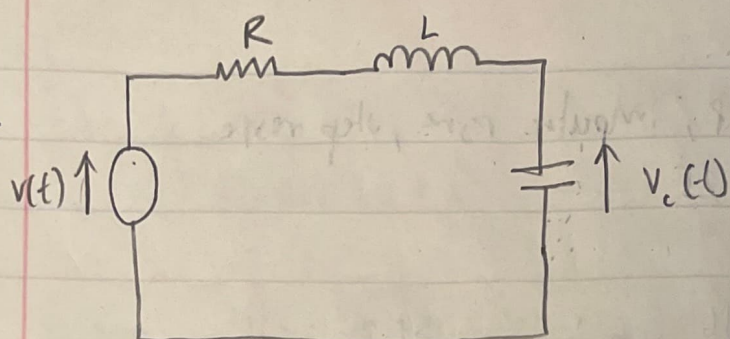 R
L
v(t)
V_c(t)